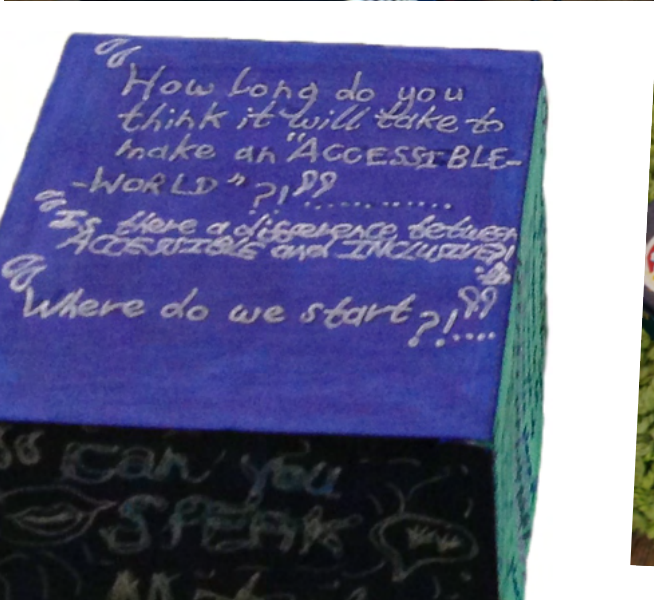 “How long do you
think it will take to
make an "ACCESSIBLE-
-WORLD" ?!”.............
“Is there a difference between
ACCESSIBLE and INCLUSIVE?!
“Where do we start?!”....
“Can you
SPEAK